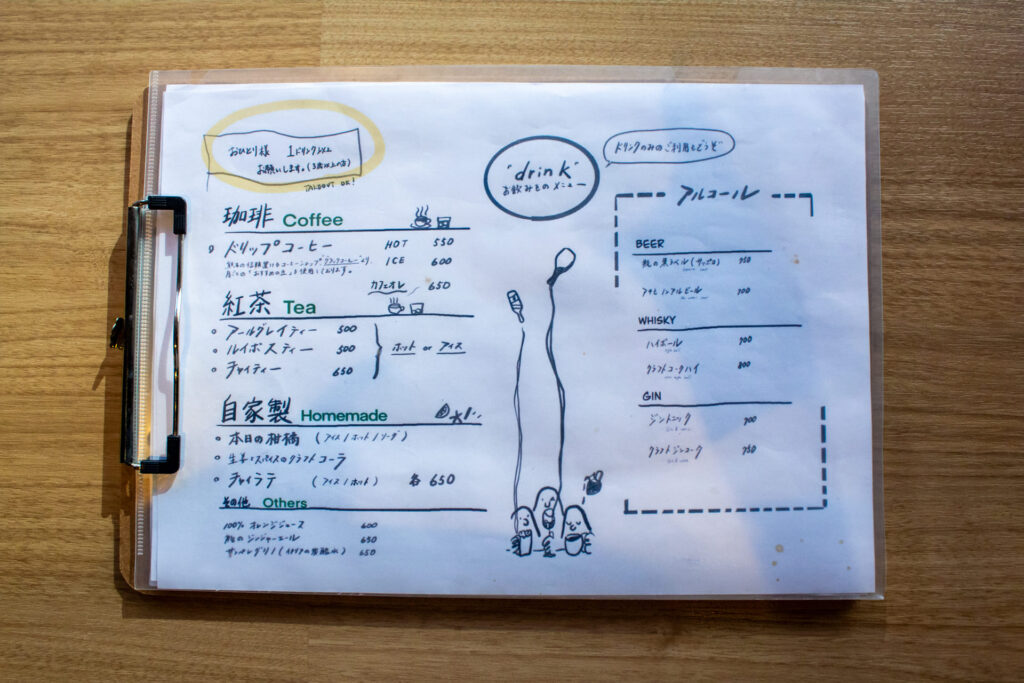 おひとり様 1ドリンク以上
お願いします。(3歳以上の方)
TAKEOUT OK!
珈琲 Coffee
ドリップコーヒー HOT 550
ICE 600
月ごとの「おすすめの豆」を使用しております。
カフェオレ 650
紅茶 Tea
アールグレイティー 500
ルイボスティー 500
チャイティー 650
ホット or アイス
自家製 Homemade
本日の柑橘 (アイス/ホット/ソーダ)
生姜とスパイスのクラフトコーラ
チャイラテ (アイス/ホット) 各650
その他 Others
100% オレンジジュース 600
瓶のジンジャーエール 650
サンペレグリノ(イタリアの炭酸水) 650
"drink"
お飲みものメニュー
ドリンクのみのご利用もどうぞ
アルコール
BEER
瓶の黒ラベル(サッポロ) 750
アサヒノンアルビール 700
WHISKY
ハイボール 700
クラフトコークハイ 800
GIN
ジントニック 700
クラフトジンコーク 750